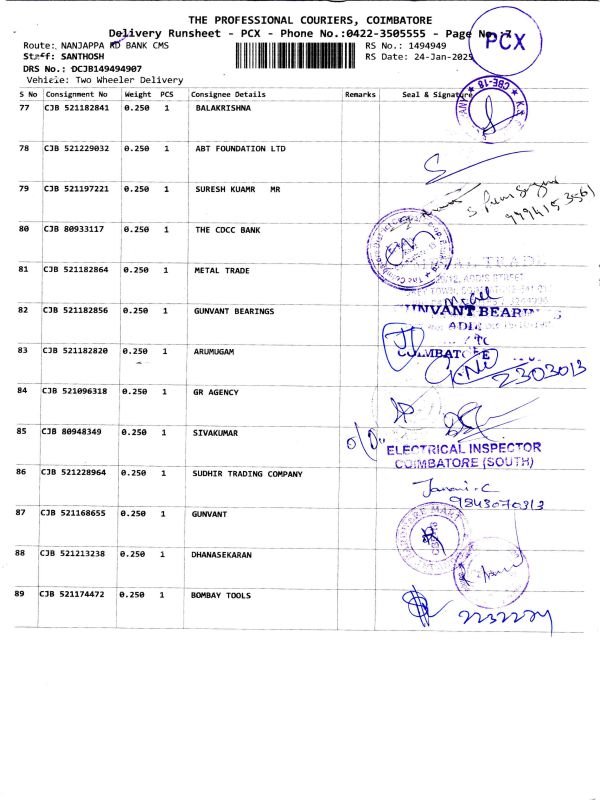 THE PROFESSIONAL COURIERS, COIMBATORE
Delivery Runsheet - PCX - Phone No.:0422-3505555 - Page No.:7
PCX
Route: NANJAPPA RD BANK CMS RS No.: 1494949
Staff: SANTHOSH RS Date: 24-Jan-2025
DRS No.: DCJB149494907
Vehicle: Two Wheeler Delivery
S No Consignment No Weight PCS Consignee Details Remarks Seal & Signature
77 CJB 521182841 0.250 1 BALAKRISHNA
CBE-18
78 CJB 521229032 0.250 1 ABT FOUNDATION LTD
79 CJB 521197221 0.250 1 SURESH KUAMR MR
80 CJB 80933117 0.250 1 THE CDCC BANK
81 CJB 521182864 0.250 1 METAL TRADE
82 CJB 521182856 0.250 1 GUNVANT BEARINGS
83 CJB 521182820 0.250 1 ARUMUGAM
2303013
84 CJB 521096318 0.250 1 GR AGENCY
85 CJB 80948349 0.250 1 SIVAKUMAR
ELECTRICAL INSPECTOR
COIMBATORE (SOUTH)
86 CJB 521228964 0.250 1 SUDHIR TRADING COMPANY
Janani.C
9843070313
87 CJB 521168655 0.250 1 GUNVANT
88 CJB 521213238 0.250 1 DHANASEKARAN
89 CJB 521174472 0.250 1 BOMBAY TOOLS